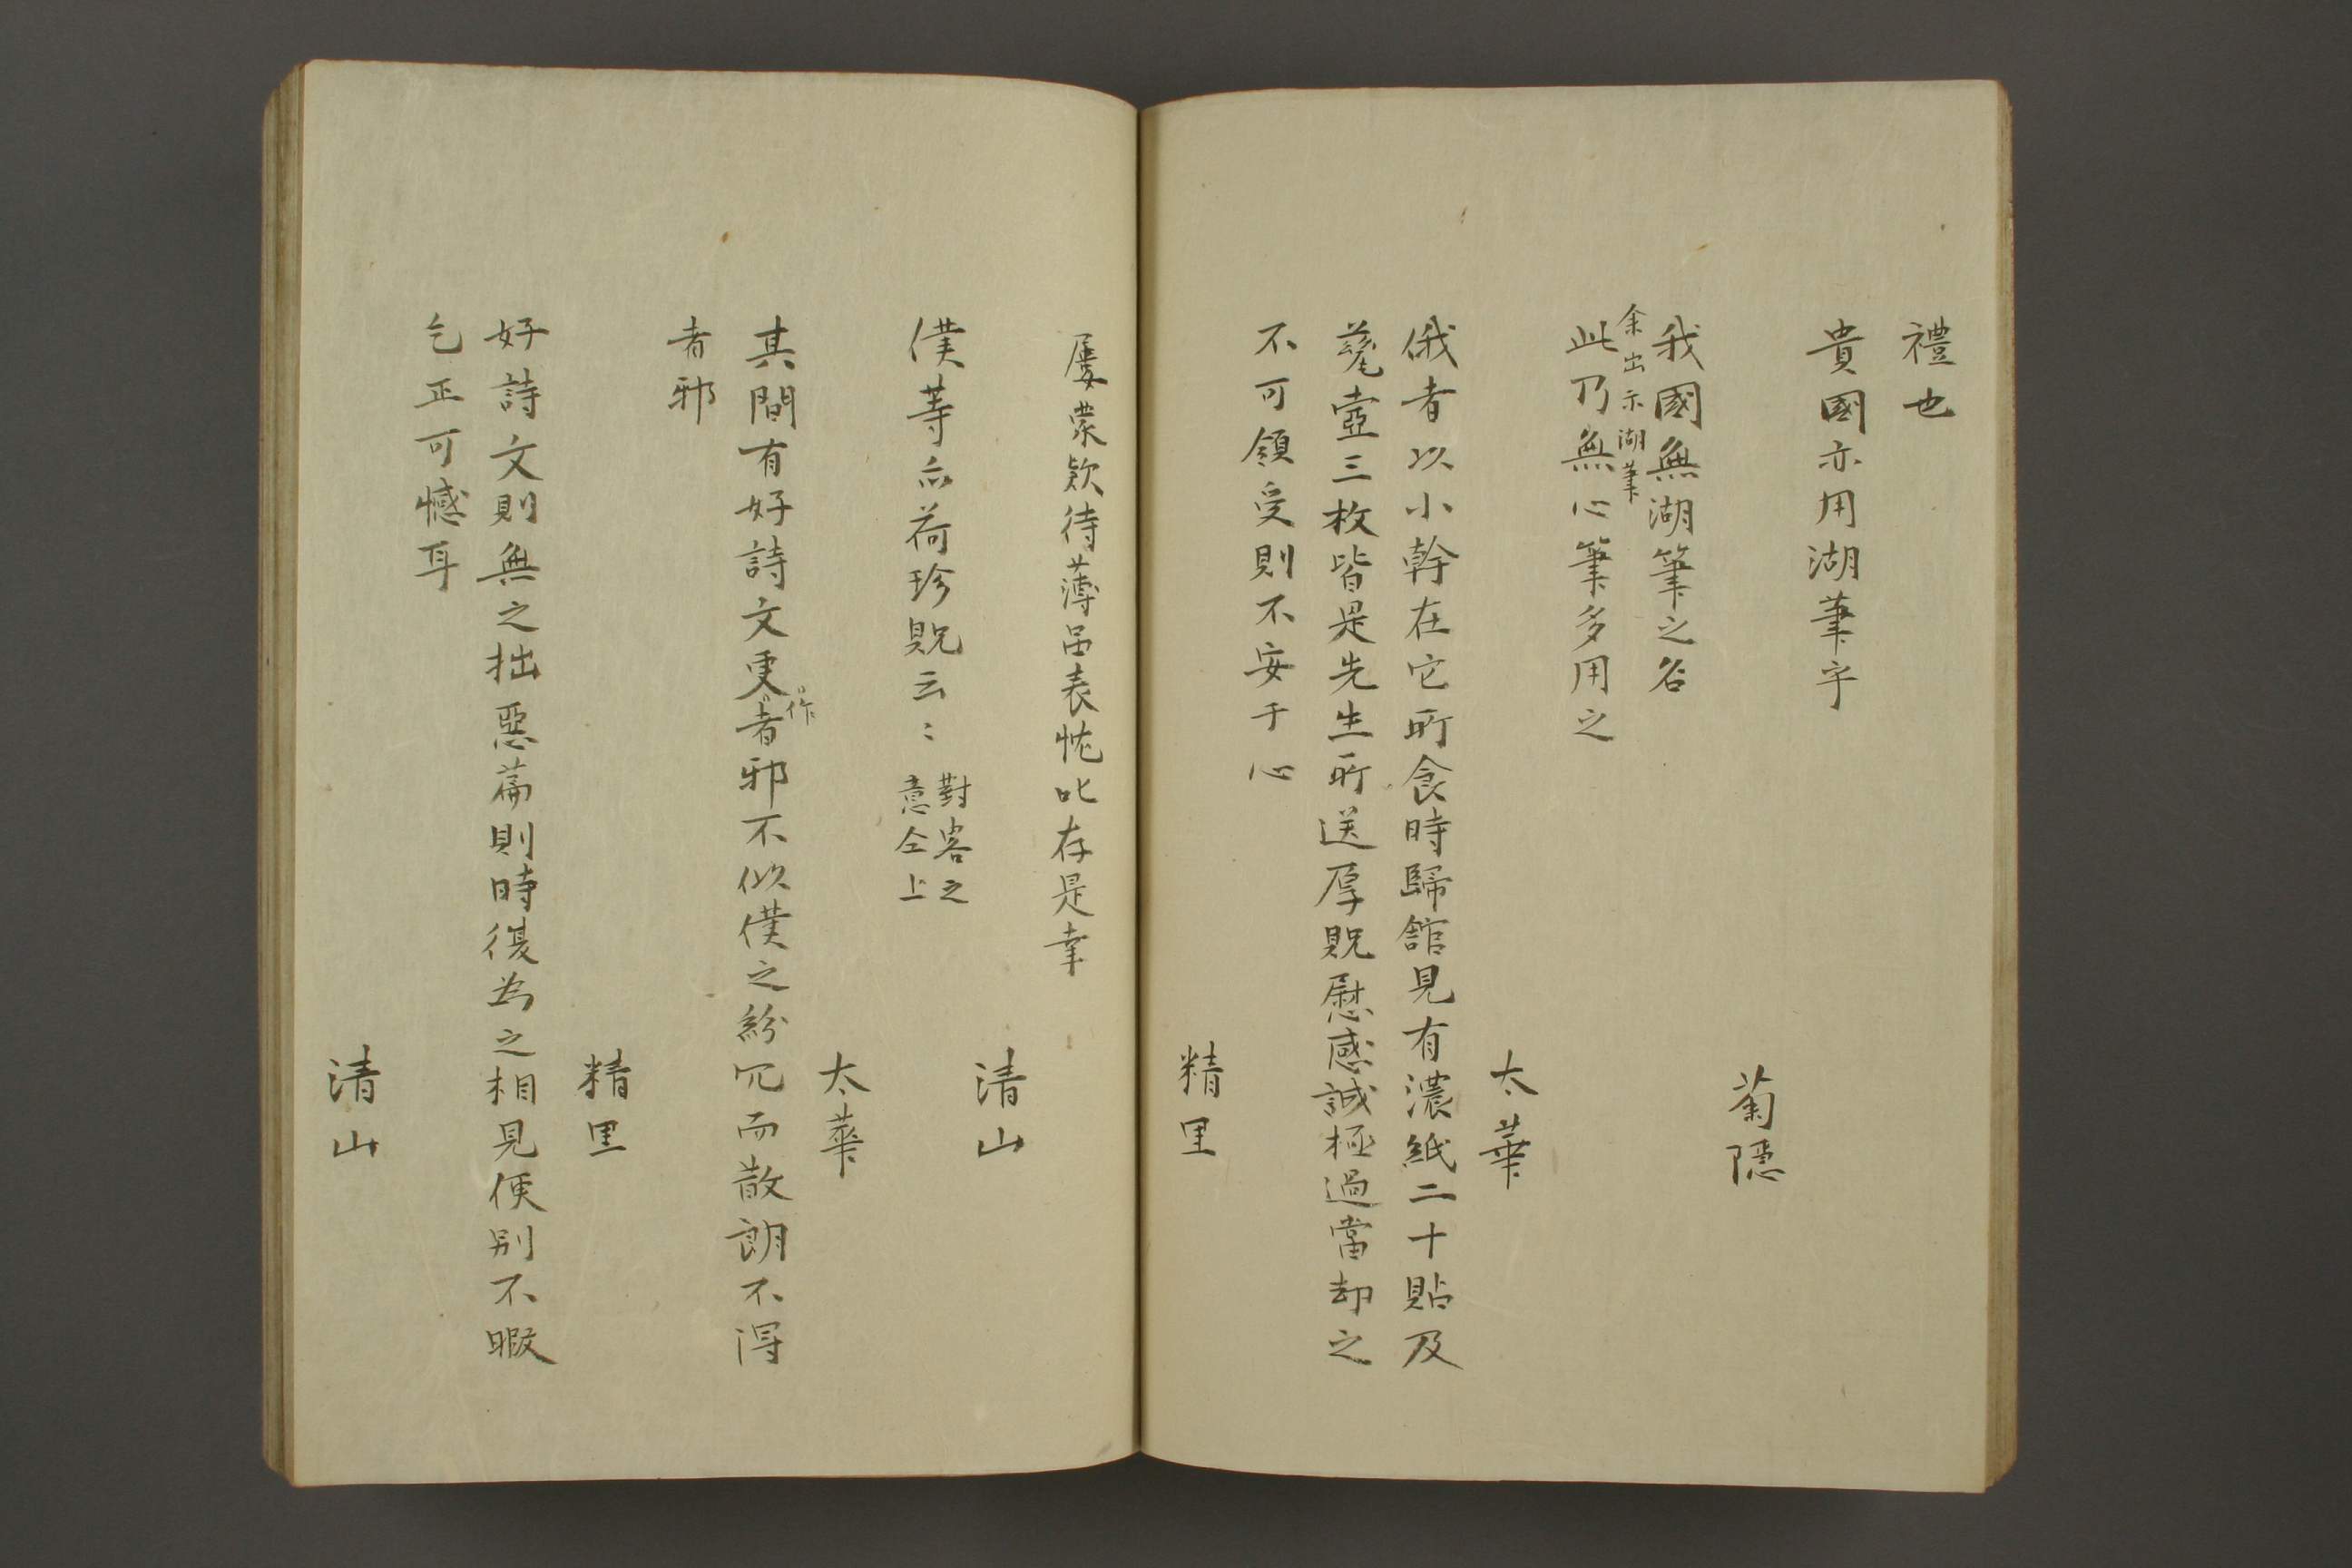 禮也
貴國亦用湖筆乎
菊隱
我國無湖筆之名
余出示湖筆
此乃無心筆多用之
太華
俄者以小幹在它所食時歸館見有濃紙二十貼及
壷三枚皆是先生所送厚貺慰感誠極過當却之
不可領受則不安于心
精里
屢蒙欵待薄品表忱叱存是幸
清山
僕等亦荷珍貺云〻
對客之
意仝上
太華
其間有好詩文更者邪不似僕之紛冗而散朗不得
作
者邪
精里
好詩文則無之拙惡篇則時復為之相見便別不暇
乞正可憾耳
清山